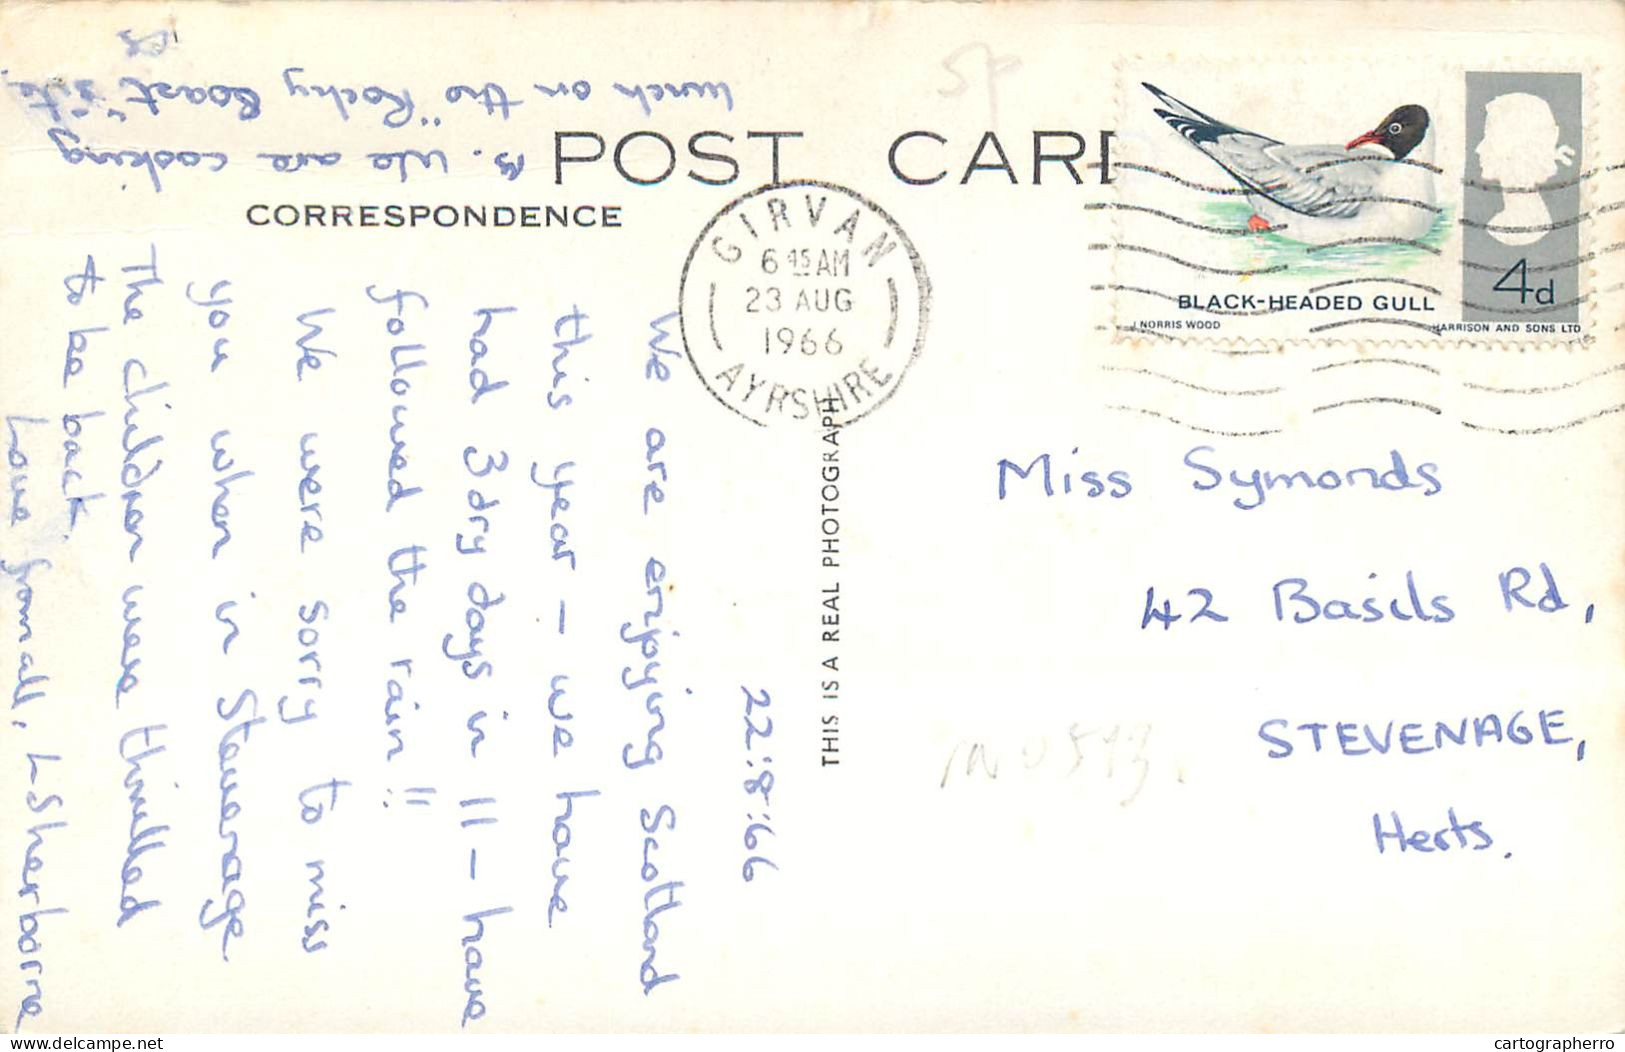 POST CARD
CORRESPONDENCE
GIRVAN
6 45 AM
23 AUG
1966
AYRSHIRE
BLACK-HEADED GULL
4d
J NORRIS WOOD
HARRISON AND SONS LTD
THIS IS A REAL PHOTOGRAPH
22:8:66
We are enjoying Scotland
this year - we have
had 3 dry days in 11 - have
followed the rain!!
We were sorry to miss
you when in Stevenage.
The children were thrilled
to be back.
Love from all, L Sherborne
We are cooking
lunch on the "Rocky Coast" site.
Miss Symonds
42 Basils Rd,
STEVENAGE,
Herts.
delcampe.net
cartographerro